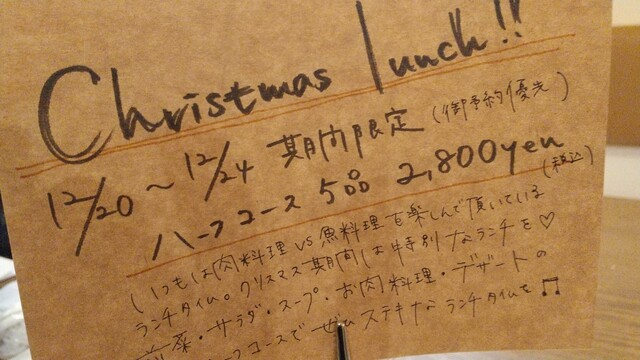 Christmas lunch!!
12/20 〜 12/24 期間限定 (御予約優先)
ハーフコース 5品 2,800yen (税込)
いつもは肉料理 VS 魚料理を楽しんで頂いている
ランチタイム。クリスマス期間は特別なランチを♡
前菜・サラダ・スープ・お肉料理・デザートの
コースで ぜひ ステキな ランチタイムを ♫